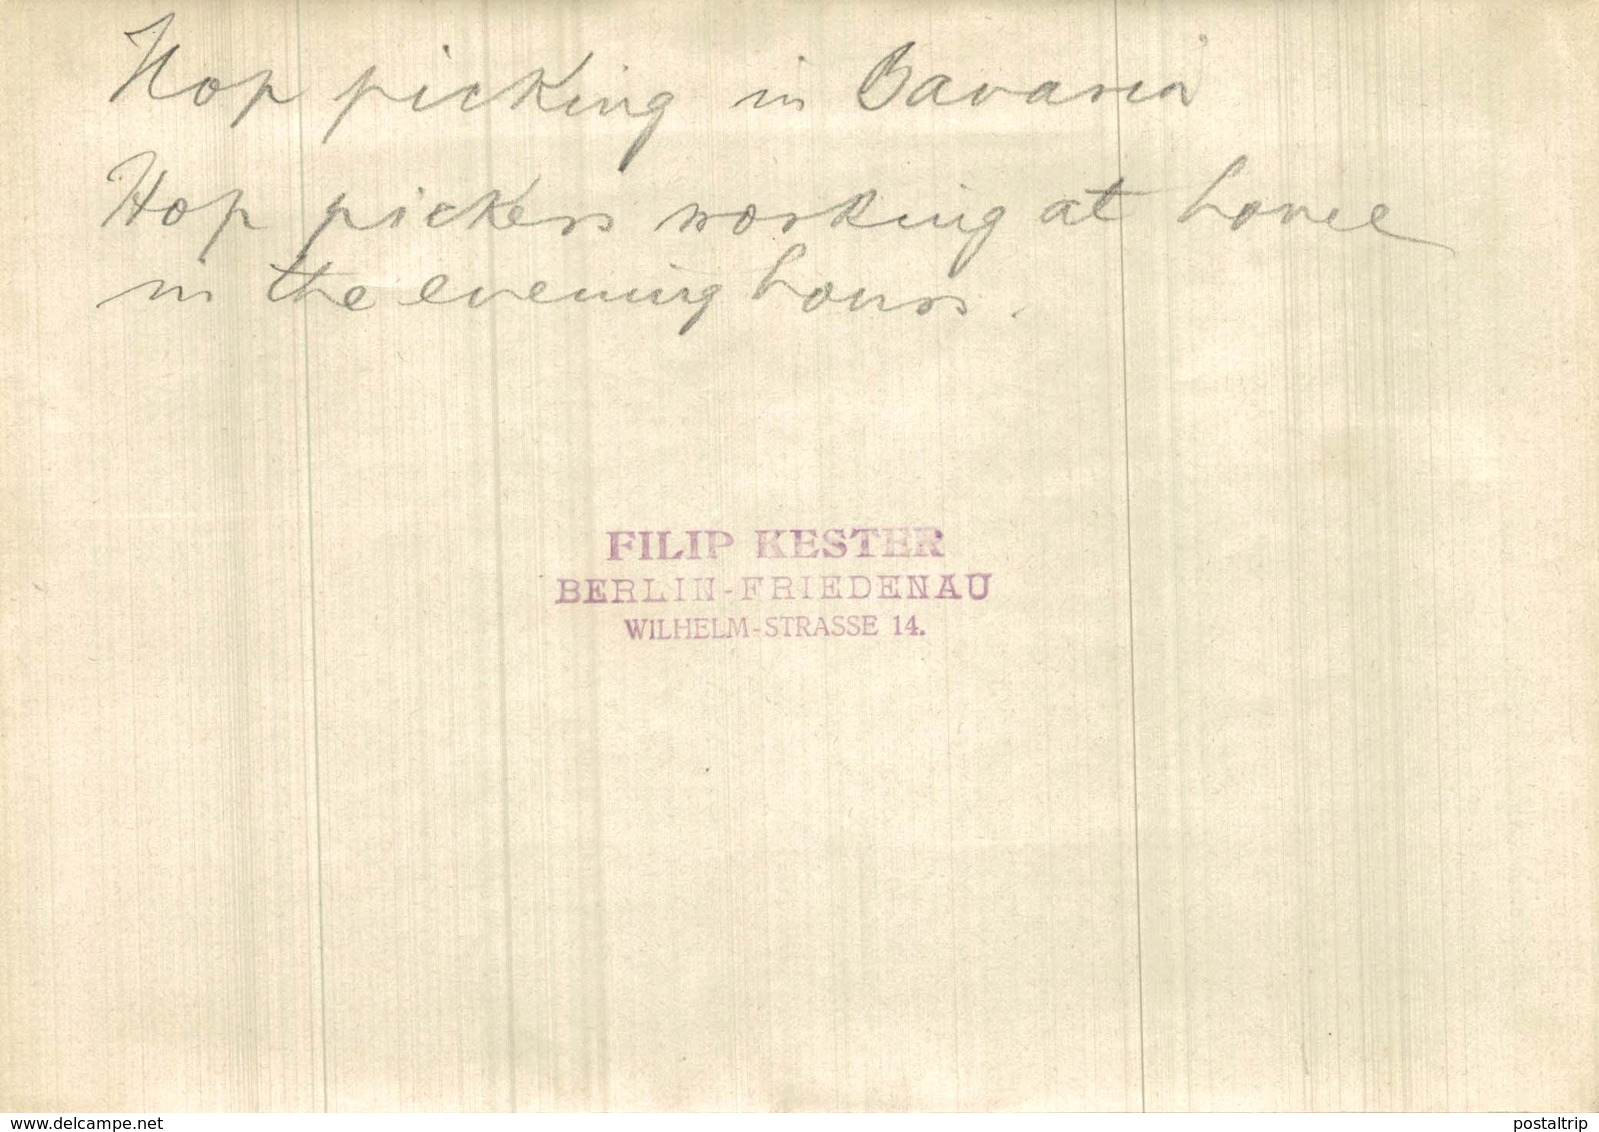 Hop picking in Bavaria
Hop pickers working at home
in the evening hours.
FILIP KESTER
BERLIN-FRIEDENAU
WILHELM-STRASSE 14.
www.delcampe.net
postaltrip